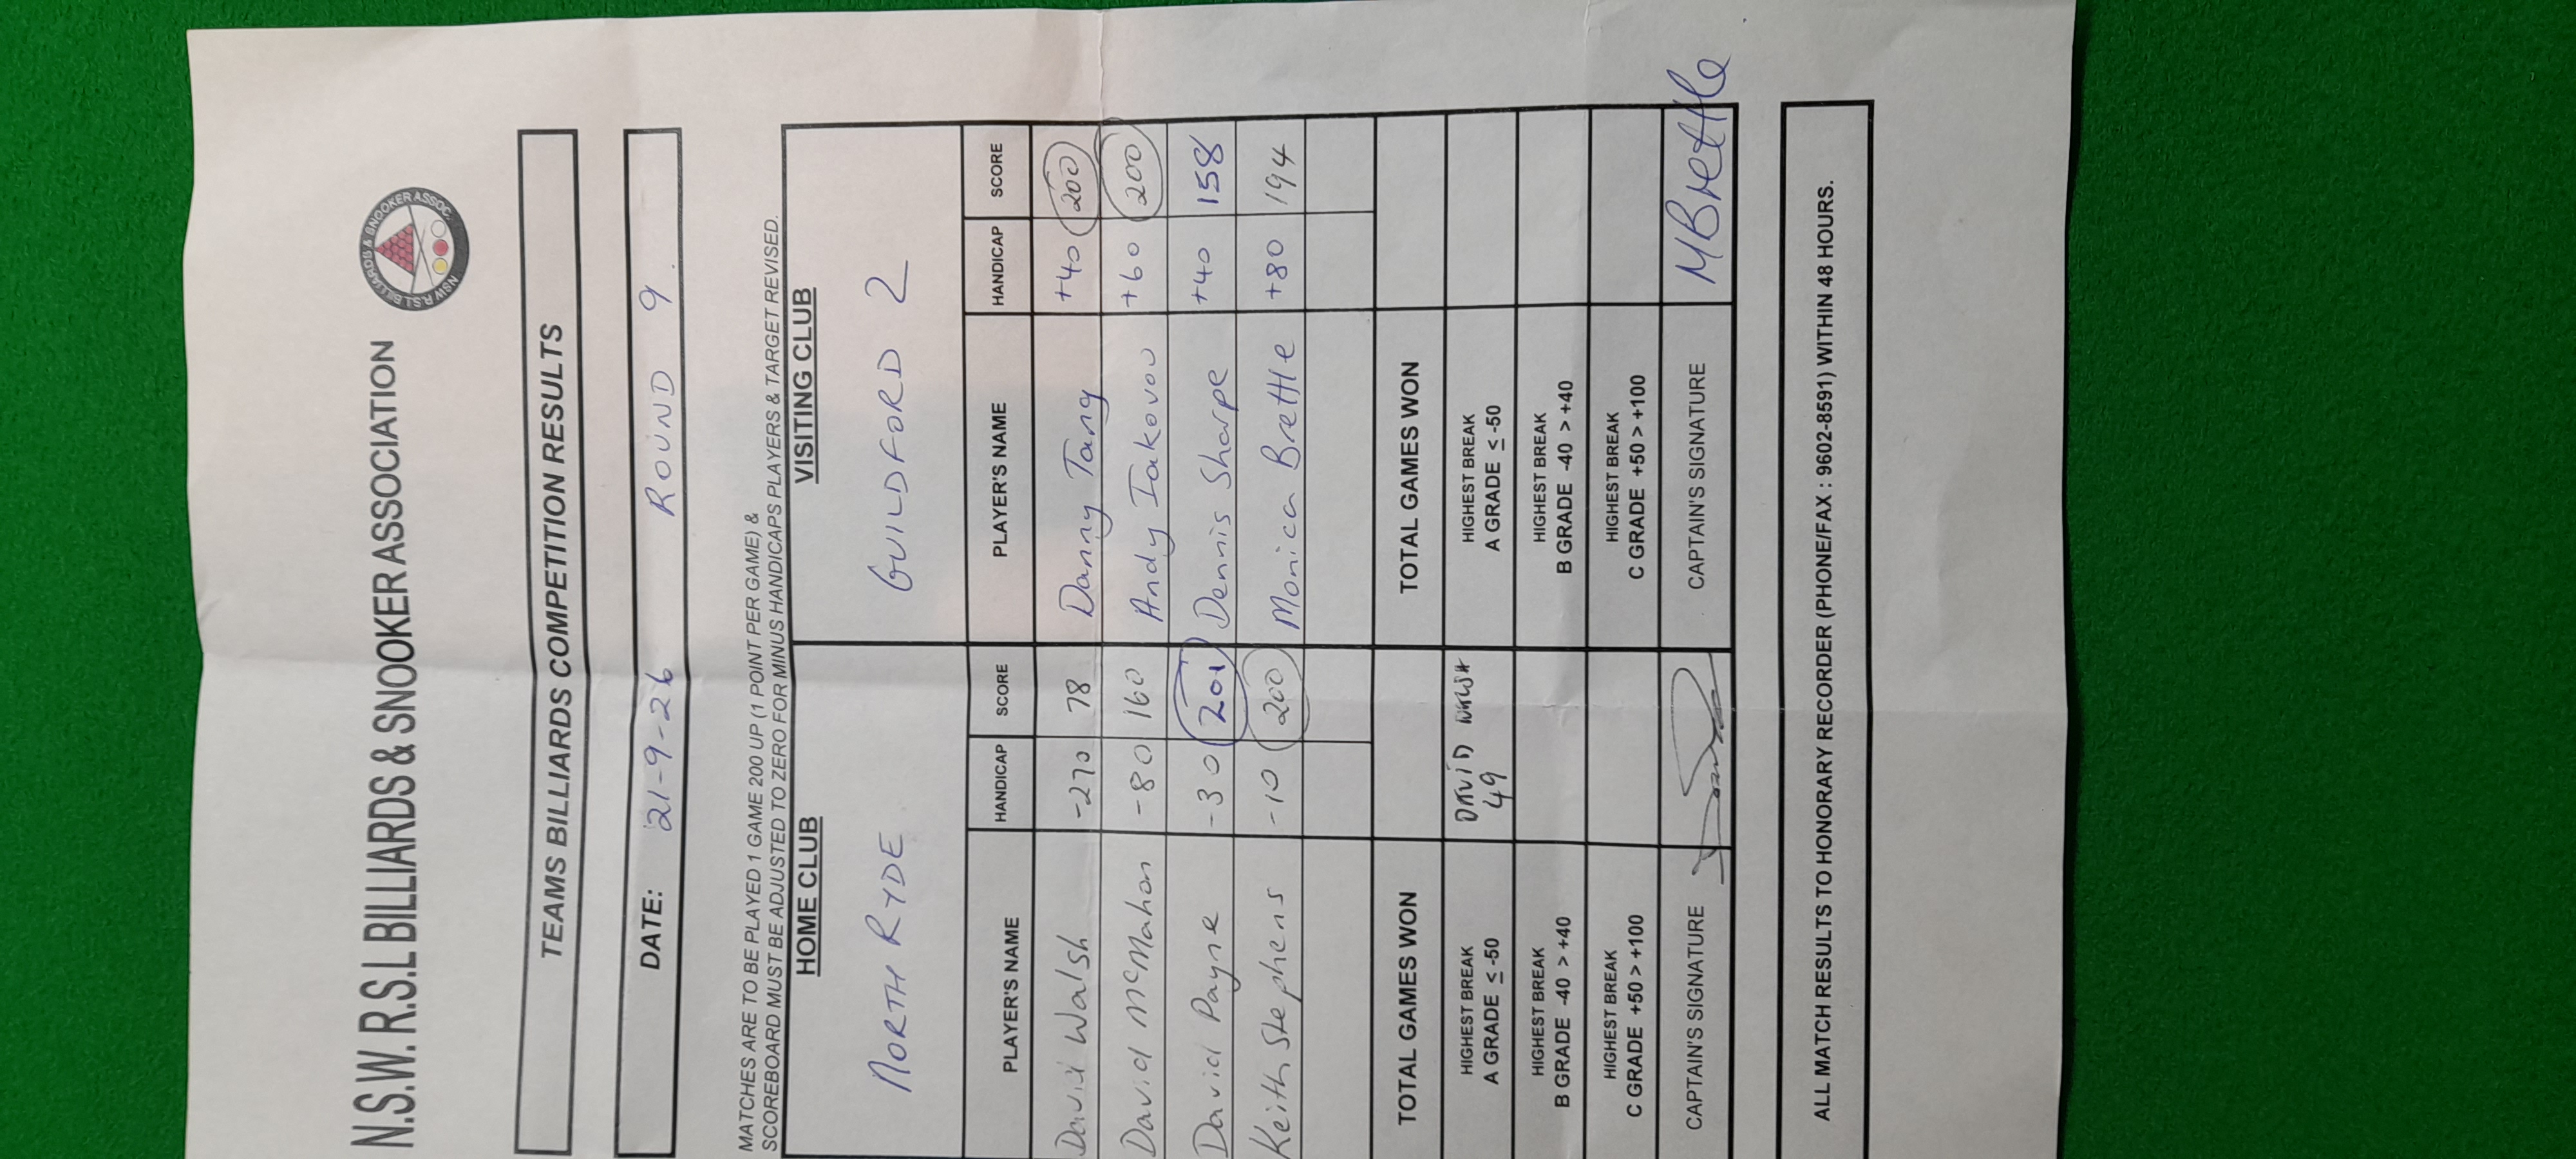 N.S.W. R.S.L BILLIARDS & SNOOKER ASSOCIATION
NSW R.S.L BILLIARDS & SNOOKER ASSOC.
TEAMS BILLIARDS COMPETITION RESULTS
DATE: 21-9-26 ROUND 9
MATCHES ARE TO BE PLAYED 1 GAME 200 UP (1 POINT PER GAME) &
SCOREBOARD MUST BE ADJUSTED TO ZERO FOR MINUS HANDICAPS PLAYERS & TARGET REVISED.
HOME CLUB VISITING CLUB
NORTH RYDE GUILDFORD 2
PLAYER'S NAME HANDICAP SCORE PLAYER'S NAME HANDICAP SCORE
David Walsh -270 78 Danny Tang +40 200
David McMahon -80 160 Andy Iakovou +60 200
David Payne -30 201 Dennis Sharpe +40 158
Keith Stephens -10 200 Monica Brettle +80 194
TOTAL GAMES WON TOTAL GAMES WON
HIGHEST BREAK DAVID HIGHEST BREAK
A GRADE ≤ -50 49 A GRADE ≤ -50
HIGHEST BREAK HIGHEST BREAK
B GRADE -40 > +40 B GRADE -40 > +40
HIGHEST BREAK HIGHEST BREAK
C GRADE +50 > +100 C GRADE +50 > +100
CAPTAIN'S SIGNATURE CAPTAIN'S SIGNATURE MBrettle
ALL MATCH RESULTS TO HONORARY RECORDER (PHONE/FAX : 9602-8591) WITHIN 48 HOURS.